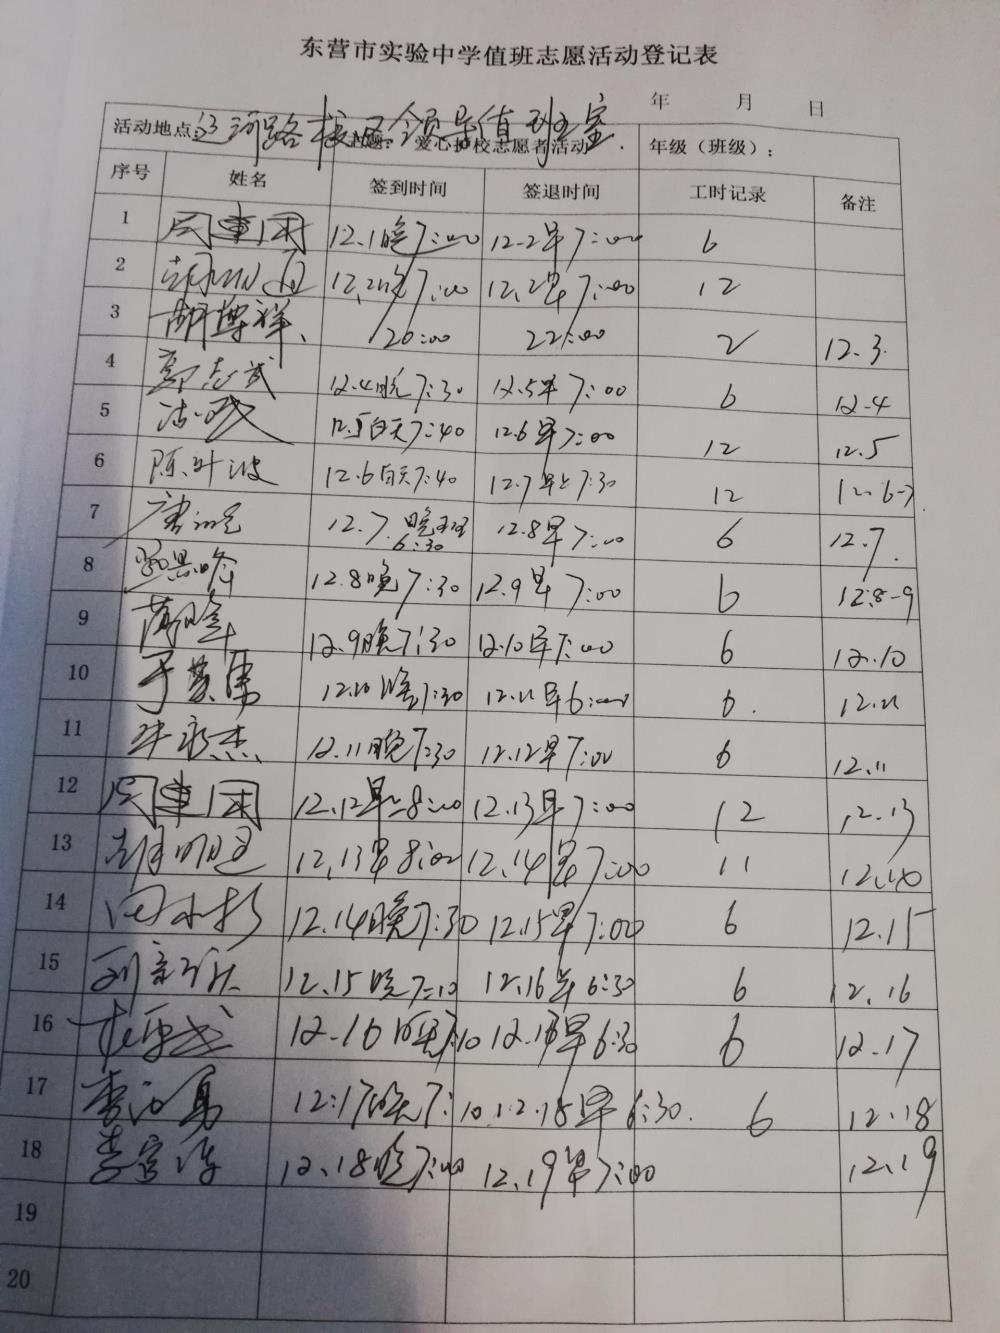 东营市实验中学值班志愿活动登记表
年 月 日
活动地点: 辽河路校区领导值班室. 主题: 爱心护校志愿者活动 年级（班级）:
序号 姓名 签到时间 签退时间 工时记录 备注
1 12.1晚7:00 12.2早7:00 6
2 12.2晚7:00 12.2早7:00 12
3 胡博祥 20:00 22:00 2 12.3
4 郭志武 12.4晚7:30 12.5早7:00 6 12.4
5 12.5白天7:40 12.6早7:00 12 12.5
6 陈叶波 12.6白天7:40 12.7早上7:30 12 12.6-7
7 12.7.晚班6:30 12.8早7:00 6 12.7.
8 12.8晚7:30 12.9早7:00 6 12.8-9
9 12.9晚7:30 12.10早7:00 6 12.10
10 12.10晚7:30 12.11早6:00 6. 12.11
11 牟永杰 12.11晚7:30 12.12早7:00 6 12.11
12 12.12早8:00 12.13早7:00 12 12.13
13 12.13早8:00 12.14早7:00 11
14 12.14晚7:30 12.15早7:00 6 12.15
15 12.15晚7:10 12.16早6:30 6 12.16
16 12.16晚7:10 早6:30 6 12.17
17 12.17晚7:10 12.18早6:30. 6 12.18
18 12.18晚7:00 12.19早7:00 12.19
19
20